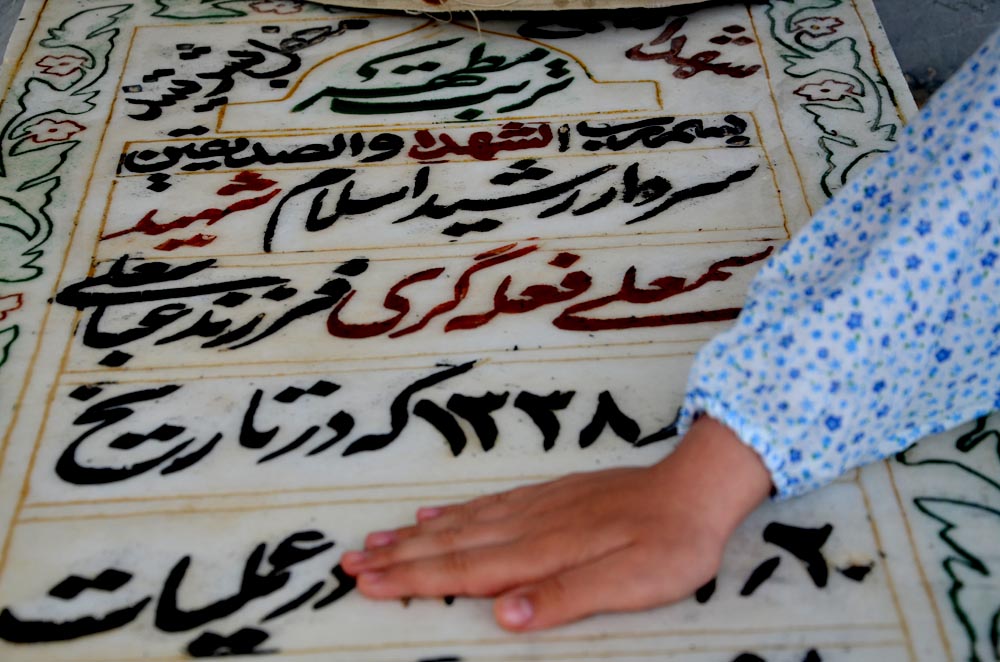 شهدا
تربت مطهر
بسم رب الشهدا والصدیقین
سردار رشید اسلام شهید
سمعلی فعله گری فرزند عباسعلی
۱۳۳۸ که در تاریخ
در عملیات